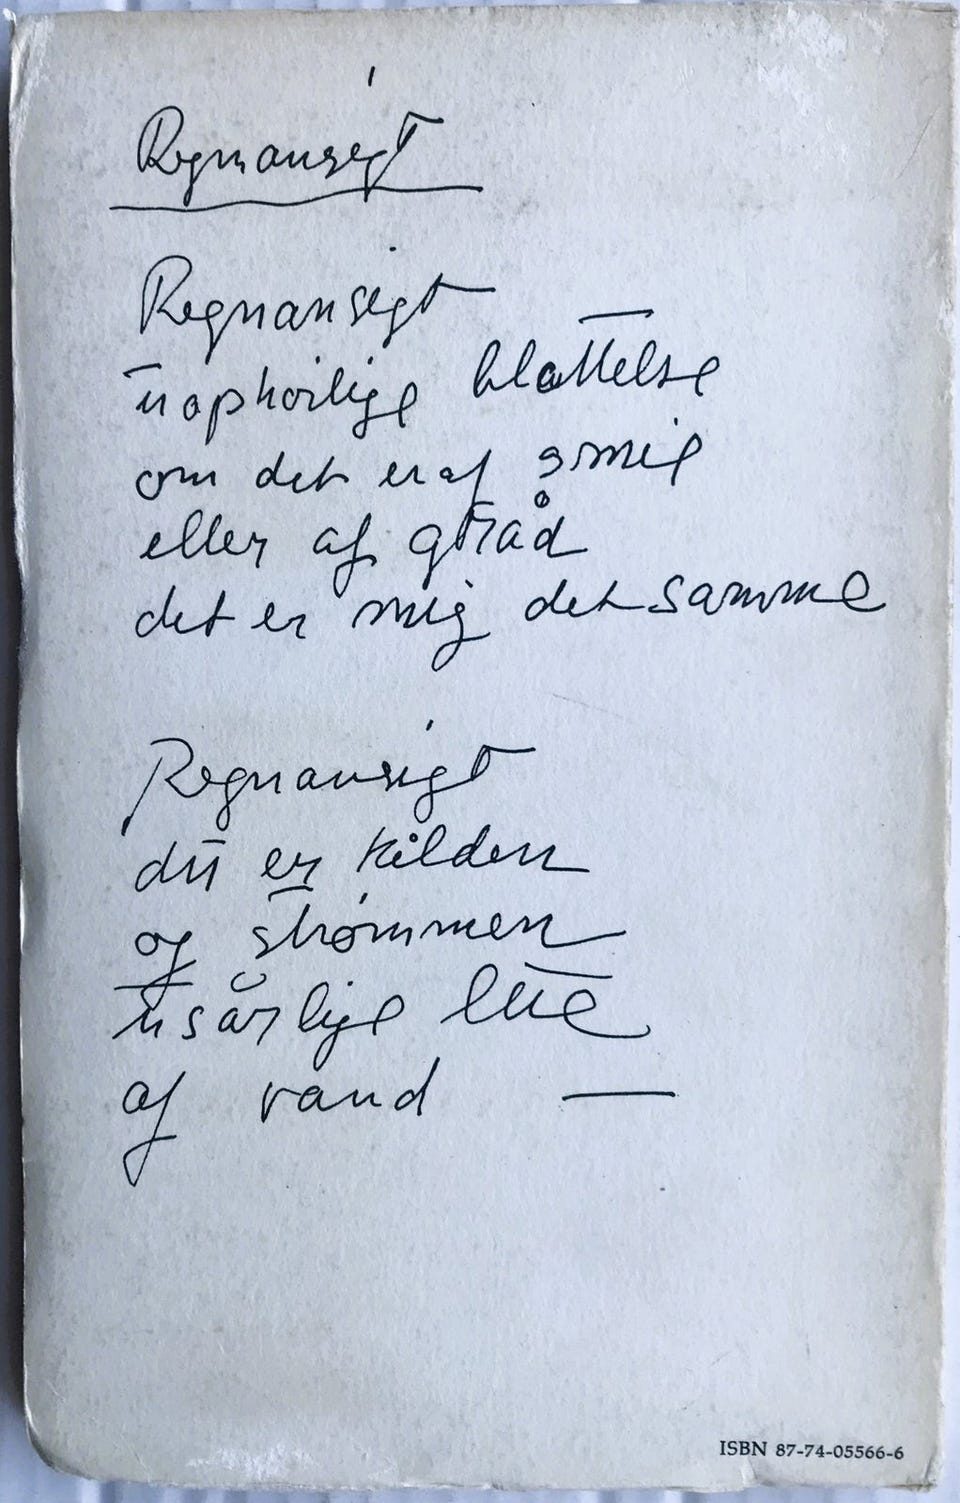 Regnansigt
Regnansigt
uophørlige blottelse
om det er af smil
eller af gråd
det er mig det samme
Regnansigt
du er kilden
og strømmen
usårlige lue
af vand —
ISBN 87-74-05566-6